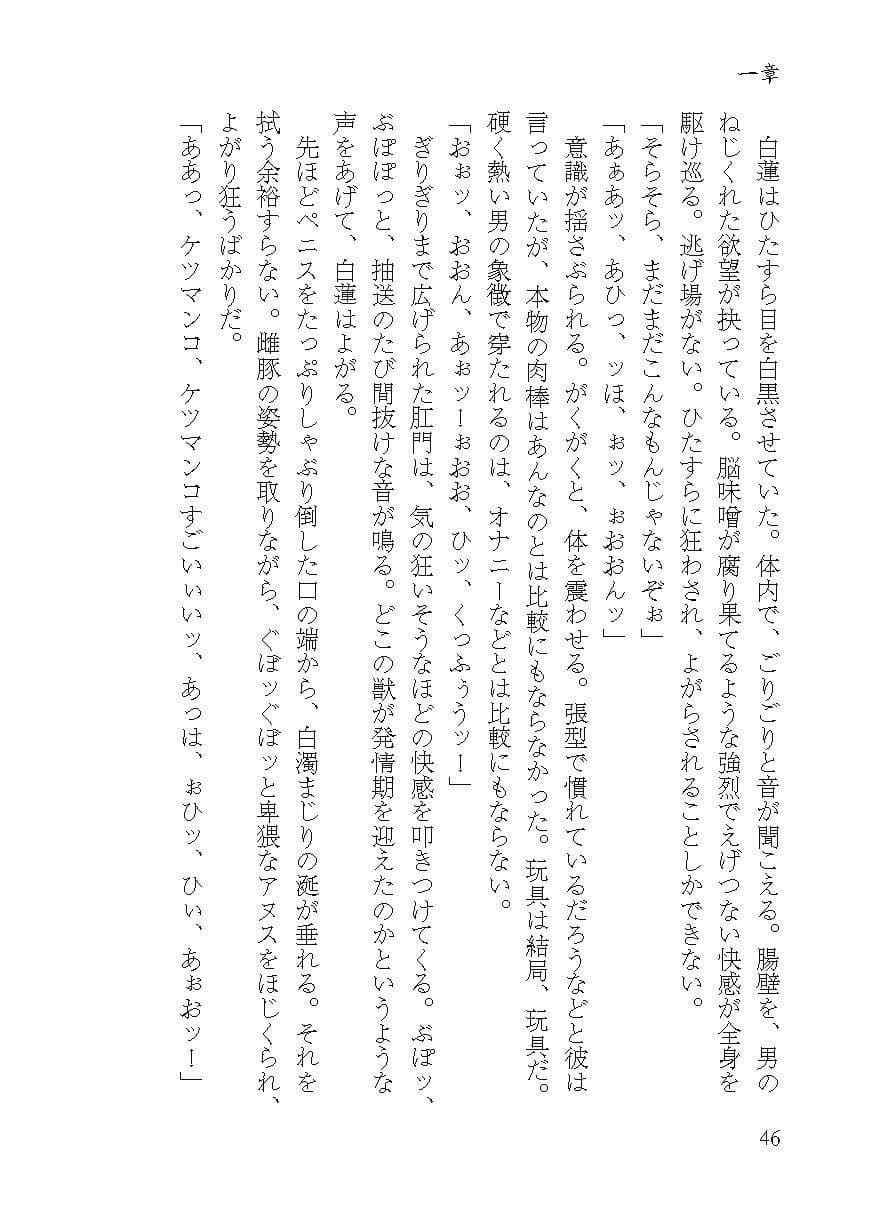 一章
白蓮はひたすら目を白黒させていた。体内で、ごりごりと音が聞こえる。腸壁を、男の
ねじくれた欲望が抉っている。脳味噌が腐り果てるような強烈でえげつない快感が全身を
駆け巡る。逃げ場がない。ひたすらに狂わされ、よがらされることしかできない。
「そらそら、まだまだこんなもんじゃないぞぉ」
「あぁあッ、あひっ、ッほ、ぉッ、ぉおおんッ」
意識が揺さぶられる。がくがくと、体を震わせる。張型で慣れているだろうなどと彼は
言っていたが、本物の肉棒はあんなのとは比較にもならなかった。玩具は結局、玩具だ。
硬く熱い男の象徴で穿たれるのは、オナニーなどとは比較にもならない。
「おぉッ、おおん、あぉッーぉおお、ひッ、くっふぅうッー」
ぎりぎりまで広げられた肛門は、気の狂いそうなほどの快感を叩きつけてくる。ぶぽッ、
ぶぽぽっと、抽送のたび間抜けな音が鳴る。どこの獣が発情期を迎えたのかというような
声をあげて、白蓮はよがる。
先ほどペニスをたっぷりしゃぶり倒した口の端から、白濁まじりの涎が垂れる。それを
拭う余裕すらない。雌豚の姿勢を取りながら、ぐぽッぐぽッと卑猥なアヌスをほじくられ、
よがり狂うばかりだ。
「ああっ、ケツマンコ、ケツマンコすごいぃいッ、あっは、ぉひッ、ひぃ、あぉおッー」
46